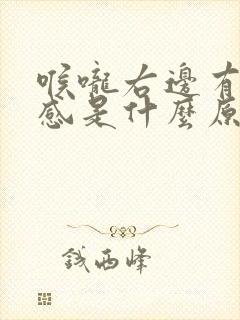 喉嚨右邊有
感是什麼原
錢西峰